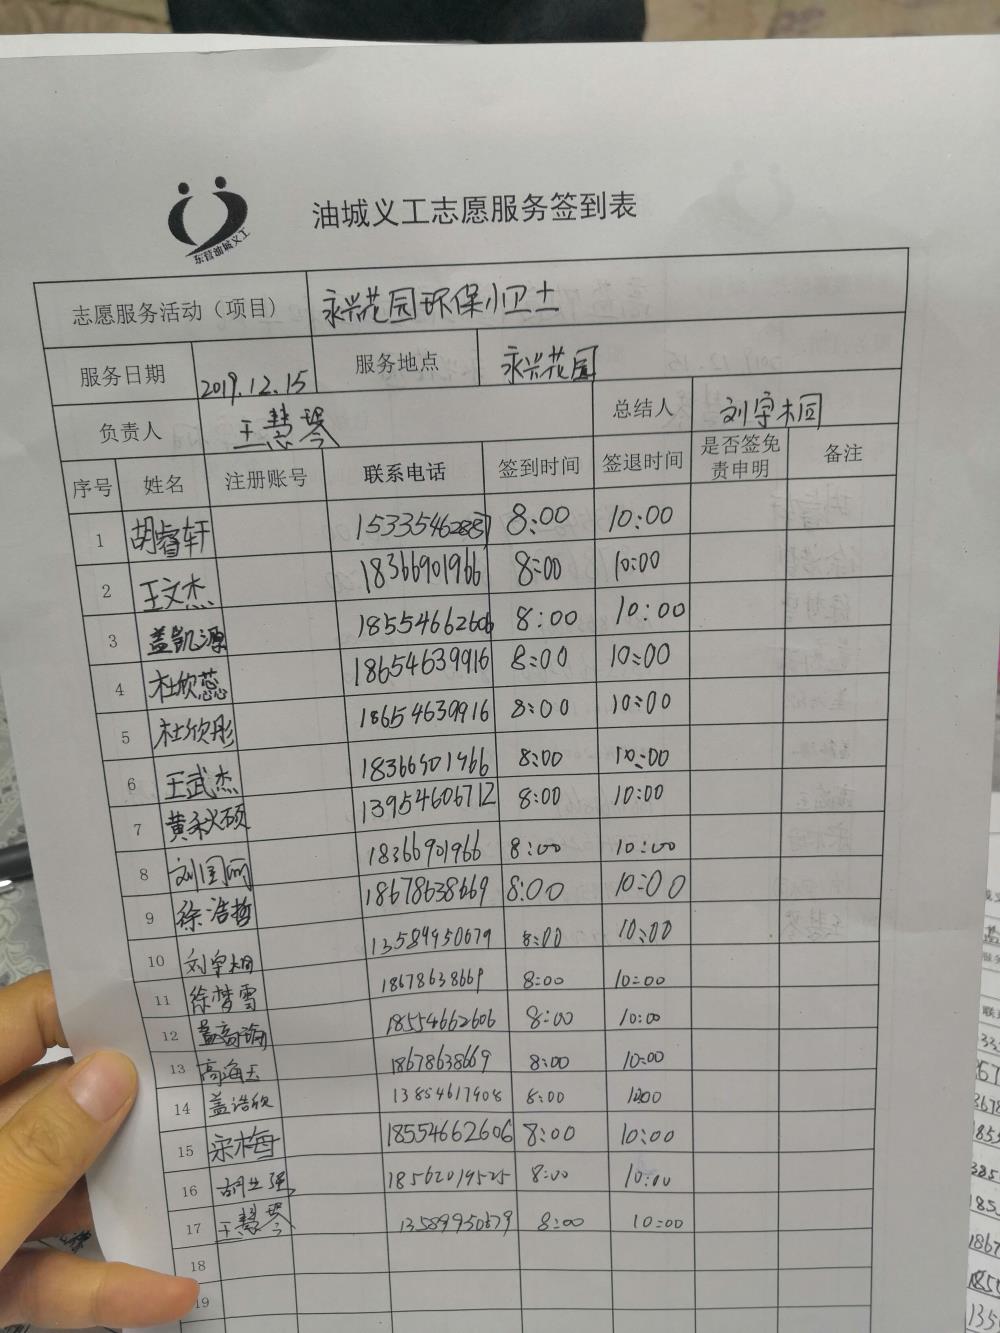 东营油城义工
油城义工志愿服务签到表
志愿服务活动（项目） 永兴花园环保小卫士
服务日期 2019.12.15 服务地点 永兴花园
负责人 王慧琴 总结人 刘宇桐
序号 姓名 注册账号 联系电话 签到时间 签退时间 是否签免责申明 备注
1 胡睿轩 8:00 10:00
2 王文杰 18366901966 8:00 10:00
3 盖凯源 18554662606 8:00 10:00
4 杜欣蕊 18654639916 8:00 10:00
5 杜欣彤 18654639916 8:00 10:00
6 王武杰 18366901966 8:00 10:00
7 黄秋硕 13954606712 8:00 10:00
8 刘国丽 18366901966 8:00 10:00
9 徐浩哲 18678638669 8:00 10:00
10 刘宇桐 13589950679 8:00 10:00
11 徐梦雪 18678638669 8:00 10:00
12 18554662606 8:00 10:00
13 高海玉 18678638669 8:00 10:00
14 盖浩欣 13854617408 8:00 1000
15 宋梅 18554662606 8:00 10:00
16 胡立强 18562019525 8:00 10:00
17 王慧琴 13589950679 8:00 10:00
18
19